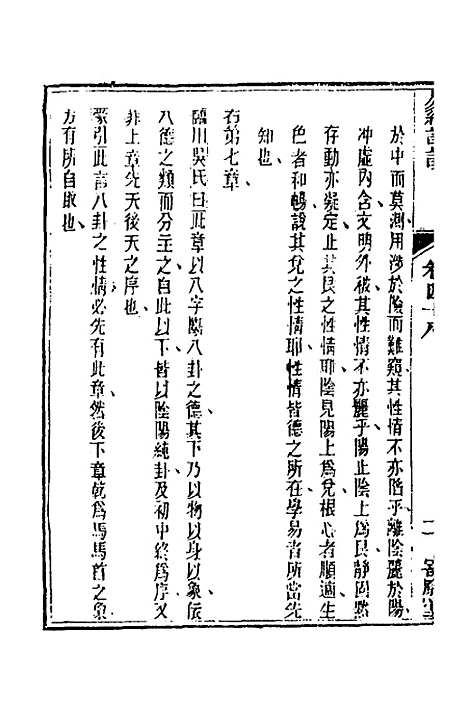 於中而莫測用涉於險而難窺其性情不亦陷乎離陰麗於陽
冲虛內含文明外被其性情不亦麗乎陽止陰上爲艮靜固黙
存動亦凝定止其艮之性情耶陰見陽上爲兌根心者順適生
色者和暢說其兌之性情耶性情皆德之所在學易者所當先
知也
右第七章
臨川吳氏曰此章以八字斷八卦之德其下乃以物以身以象仄
八德之類而分主之自此以下皆以陰陽純卦及初中終爲序又
非上章先天後天之序也
蒙引此言八卦之性情必先有此章然後下章乾爲馬馬首之象
方有所自取也
卷四十八
二